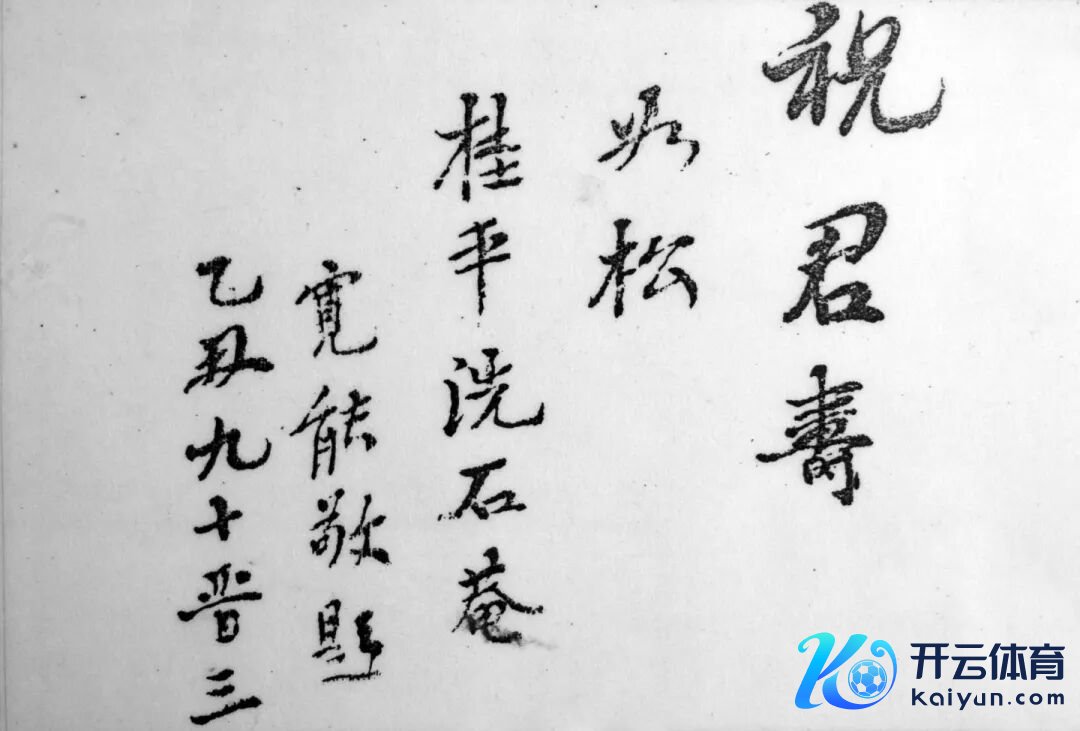 祝君壽
如松
桂平洗石菴
寬能敬題
乙丑九十晋三
开云体育
kaiyun.com